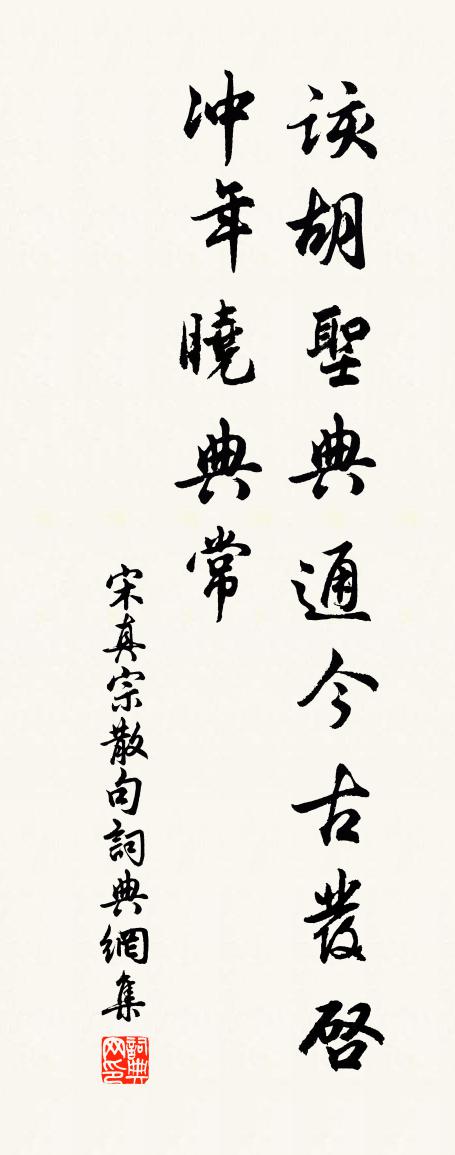 該胡聖典通今古發啓
冲年曉典常
宋真宗散句詞典網集
詞典网印